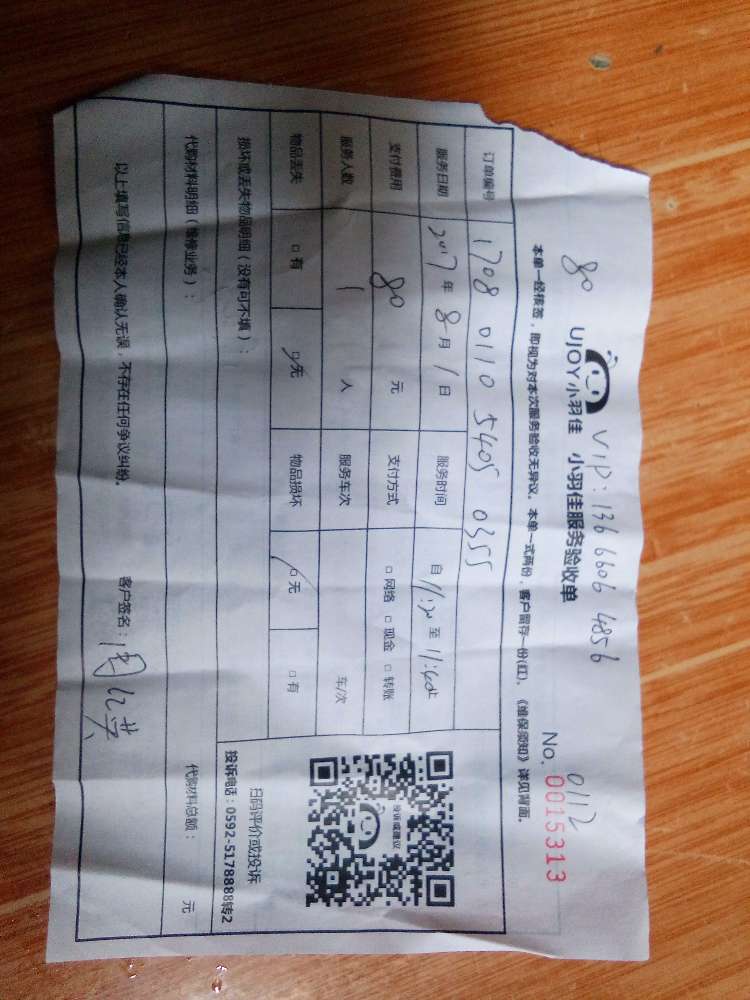 80 VIP: 136 6606 4856 0112
UJOY小羽佳 小羽佳服务验收单 No. 0015313
本单一经核签，即视为对本次服务验收无异议。本单一式两份，客户留存一份(红)。《维保须知》详见背面。
订单编号 1708 0110 5405 0355
服务日期 2017年 8月 1日 服务时间 自11:20至11:40止
支付费用 80 元 支付方式 □网络 □现金 □转账
服务人数 1 人 服务车次 车/次
物品丢失 □有 □无 物品损坏 □无 □有
投诉或建议
扫码评价或投诉
投诉电话：0592-5178888转2
损坏或丢失物品明细（没有可不填）：
代购材料明细（维修业务）： 代购材料总额： 元
以上填写信息已经本人确认无误，不存在任何争议纠纷。 客户签名：